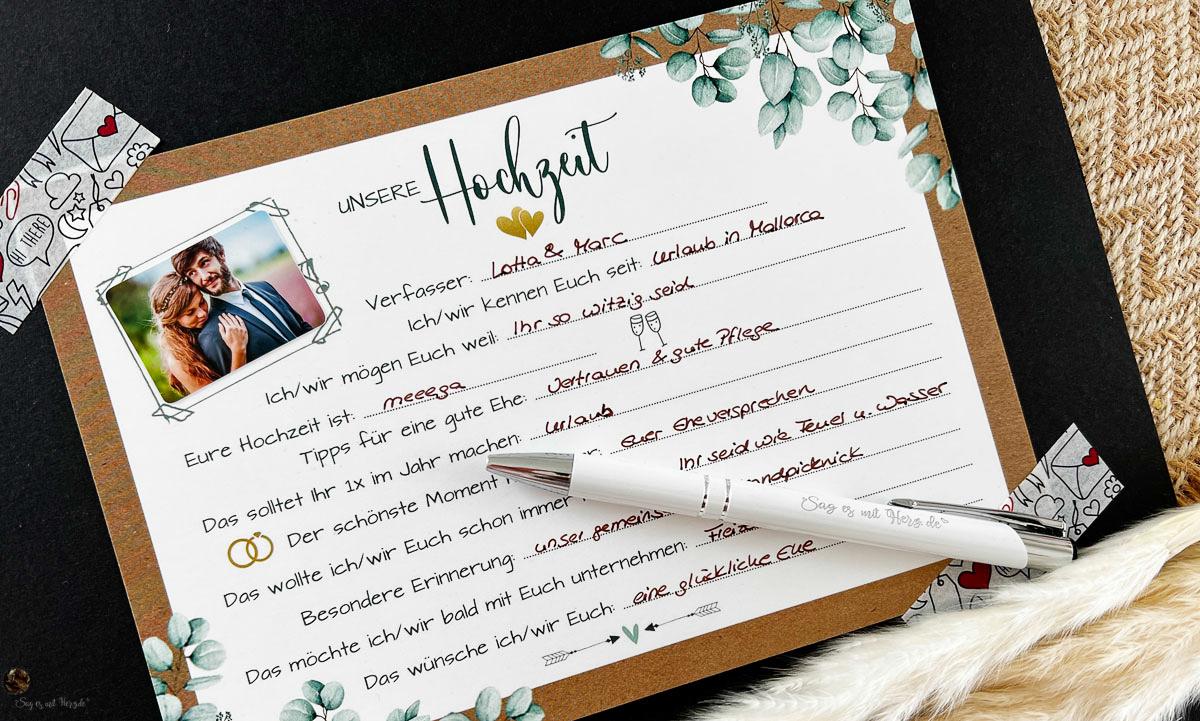 UNSERE Hochzeit
Verfasser: Lotta & Marc
Ich/wir kennen Euch seit: Urlaub in Mallorca
Ich/wir mögen Euch weil: Ihr so witzig seid
Eure Hochzeit ist: meeega
Tipps für eine gute Ehe: Vertrauen & gute Pflege
Das solltet Ihr 1x im Jahr machen: Urlaub
Der schönste Moment Euer Eheversprechen
Das wollte ich/wir Euch schon immer Ihr seid wie Feuer u. Wasser
Besondere Erinnerung: unser
Das möchte ich/wir bald mit Euch unternehmen:
Das wünsche ich/wir Euch: eine glückliche Ehe
Sag es mit Herz.de
HI THERE
Sag es mit Herz.de